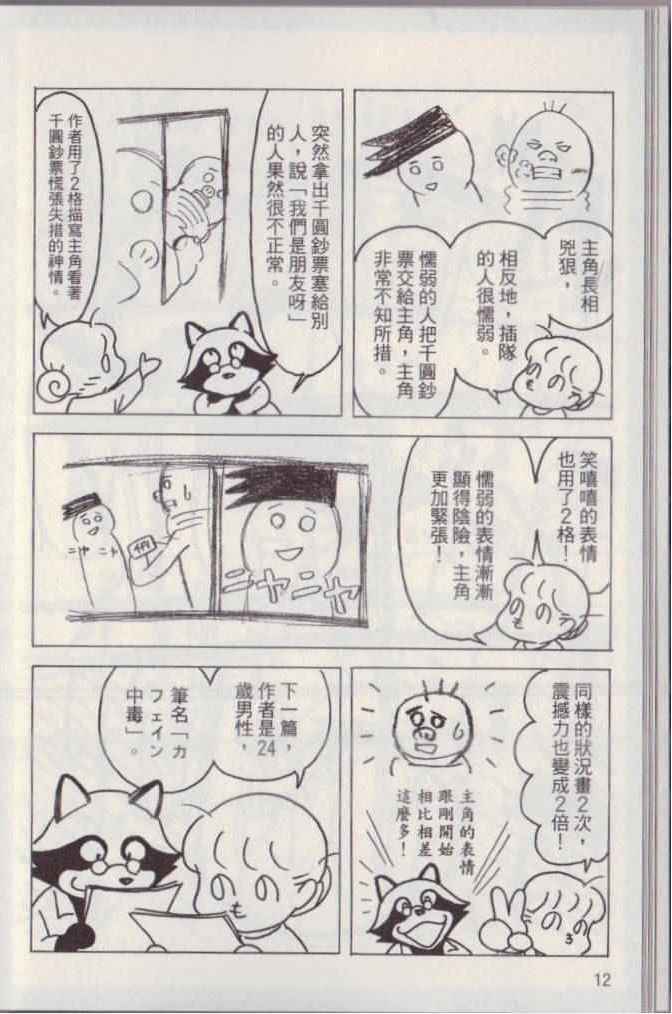 主角長相
兇狠，
相反地，插隊
的人很懦弱。
懦弱的人把千圓鈔
票交給主角，主角
非常不知所措。
突然拿出千圓鈔票塞給別
人，說「我們是朋友呀」
的人果然很不正常。
作者用了2格描寫主角看著
千圓鈔票慌張失措的神情。
笑嘻嘻的表情
也用了2格！
懦弱的表情漸漸
顯得陰險，主角
更加緊張！
ニヤニヤ
ニヤ ニヤ
同樣的狀況畫2次，
震撼力也變成2倍！
主角的表情
跟剛開始
相比相差
這麼多！
下一篇，
作者是24
歲男性，
筆名「カ
フェイン
中毒」。
12